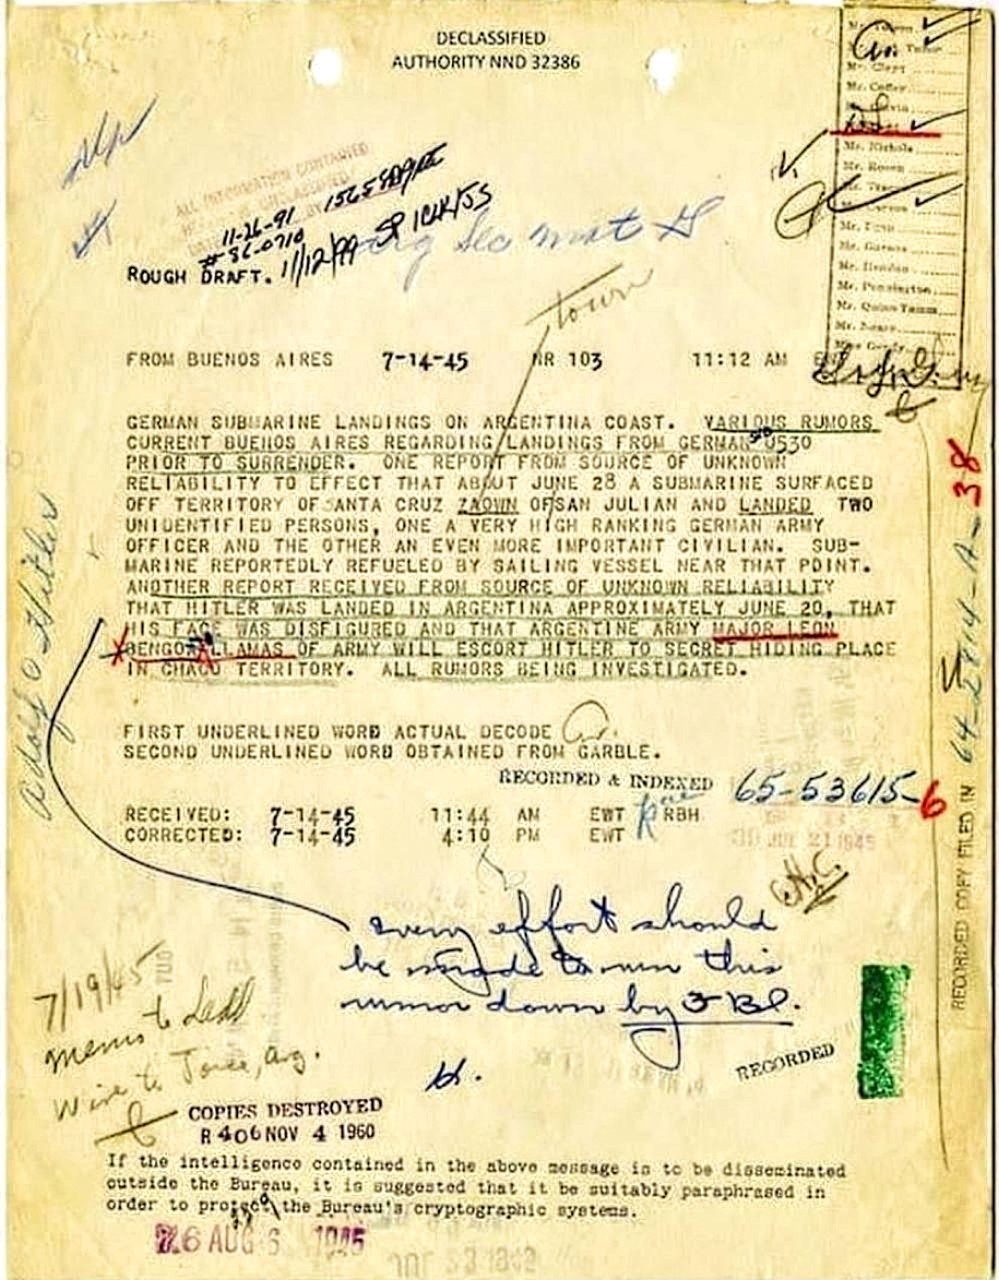 DECLASSIFIED
AUTHORITY NND 32386
Mr. Clegg
Mr. Coffey
Mr. Nichols
Mr. Rosen
Mr. Hendon
Mr. Pennington
Mr. Quinn Tamm
Mr. Nease
Miss Gandy
ALL INFORMATION CONTAINED
11-26-91
#86-0710
11/12/99
ROUGH DRAFT.
Town
FROM BUENOS AIRES 7-14-45 NR 103 11:12 AM
GERMAN SUBMARINE LANDINGS ON ARGENTINA COAST. VARIOUS RUMORS
CURRENT BUENOS AIRES REGARDING LANDINGS FROM GERMAN 0530
PRIOR TO SURRENDER. ONE REPORT FROM SOURCE OF UNKNOWN
RELIABILITY TO EFFECT THAT ABOUT JUNE 28 A SUBMARINE SURFACED
OFF TERRITORY OF SANTA CRUZ ZAOWN OF SAN JULIAN AND LANDED TWO
UNIDENTIFIED PERSONS, ONE A VERY HIGH RANKING GERMAN ARMY
OFFICER AND THE OTHER AN EVEN MORE IMPORTANT CIVILIAN. SUB-
MARINE REPORTEDLY REFUELED BY SAILING VESSEL NEAR THAT POINT.
ANOTHER REPORT RECEIVED FROM SOURCE OF UNKNOWN RELIABILITY
THAT HITLER WAS LANDED IN ARGENTINA APPROXIMATELY JUNE 20, THAT
HIS FACE WAS DISFIGURED AND THAT ARGENTINE ARMY MAJOR LEON
BENGOA LLAMAS OF ARMY WILL ESCORT HITLER TO SECRET HIDING PLACE
IN CHACO TERRITORY. ALL RUMORS BEING INVESTIGATED.
FIRST UNDERLINED WORD ACTUAL DECODE
SECOND UNDERLINED WORD OBTAINED FROM GARBLE.
RECORDED & INDEXED 65-53615-6
RECEIVED: 7-14-45 11:44 AM EWT RBH
CORRECTED: 7-14-45 4:10 PM EWT
JUL 21 1945
Adolf Hitler
every effort should
be made to run this
rumor down by FBI.
H.
7/19/45
Memo to Ladd
Wire to Joice, Arg.
RECORDED
COPIES DESTROYED
R 406 NOV 4 1960
If the intelligence contained in the above message is to be disseminated
outside the Bureau, it is suggested that it be suitably paraphrased in
order to protect the Bureau's cryptographic systems.
76 AUG 6 1945
RECORDED COPY FILED IN
38